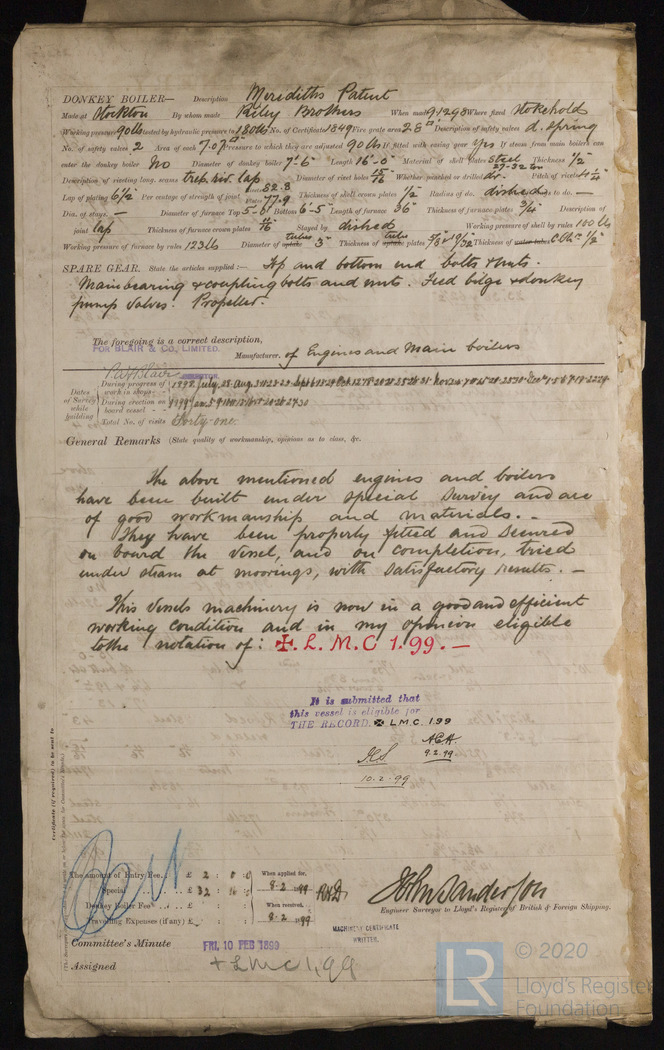 DONKEY BOILER— Description Merediths Patent
Made at Stockton By whom made Riley Brothers When made 9.12.98 Where fixed Stokehold
Working pressure 90lbs tested by hydraulic pressure to 180lbs No. of Certificate 1849 Fire grate area 28 Description of safety valves d. spring
No. of safety valves 2 Area of each 7.07 Pressure to which they are adjusted 90lbs If fitted with easing gear yes If steam from main boilers can
enter the donkey boiler No Diameter of donkey boiler 7'.6" Length 16'-0" Material of shell plates steel Thickness 1/2"
27-32 ton
Description of riveting long. seams treb. riv. lap Diameter of rivet holes Whether punched or drilled dr. Pitch of rivets
Lap of plating 6 1/2" Per centage of strength of joint Rivets 82.8 Plates 77.9 Thickness of shell crown plates 1/2 Radius of do. dished to do. —
Dia. of stays. — Diameter of furnace Top 5'-6" Bottom 6'-5" Length of furnace 36" Thickness of furnace plates 3/4" Description of
joint lap Thickness of furnace crown plates Stayed by dished Working pressure of shell by rules 100 lbs
Working pressure of furnace by rules 123lbs Diameter of tubes 3" Thickness of plates Thickness of
SPARE GEAR. State the articles supplied:— Top and bottom end bolts & nuts.
Main bearing & coupling bolts and nuts. Feed bilge & donkey
pump valves. Propeller.
The foregoing is a correct description,
FOR BLAIR & CO., LIMITED. Manufacturer. of Engines and Main boilers
Dates of Survey while building
During progress of work in shops - 1898. July. 28. Aug.
During erection on board vessel - 1899 Jan.
Total No. of visits Forty-one.
General Remarks (State quality of workmanship, opinions as to class, &c.
The above mentioned engines and boilers
have been built under special survey and are
of good workmanship and materials. —
They have been properly fitted and secured
on board the vessel, and on completion, tried
under steam at moorings, with satisfactory results. —
This Vessels machinery is now in a good and efficient
working condition and in my opinion eligible
to the notation of: ✠. L. M. C 1.99. —
It is submitted that
this vessel is eligible for
THE RECORD. ✠ L.M.C. 1.99
9.2.99
10.2.99
Certificate (if required) to be sent to
The amount of Entry Fee.. £ 2 : 0 : 0 When applied for,
Special .. .. £ 32 : 8.2.99
Donkey Boiler Fee .. .. £ : : When received,
Travelling Expenses (if any) £ : : 8.2.99
John Sanderson
Engineer Surveyor to Lloyd's Register of British & Foreign Shipping.
MACHINERY CERTIFICATE
WRITTEN.
Committee's Minute FRI, 10 FEB 1899
Assigned + L M C 1,99
© 2020
LR Lloyd's Register
Foundation